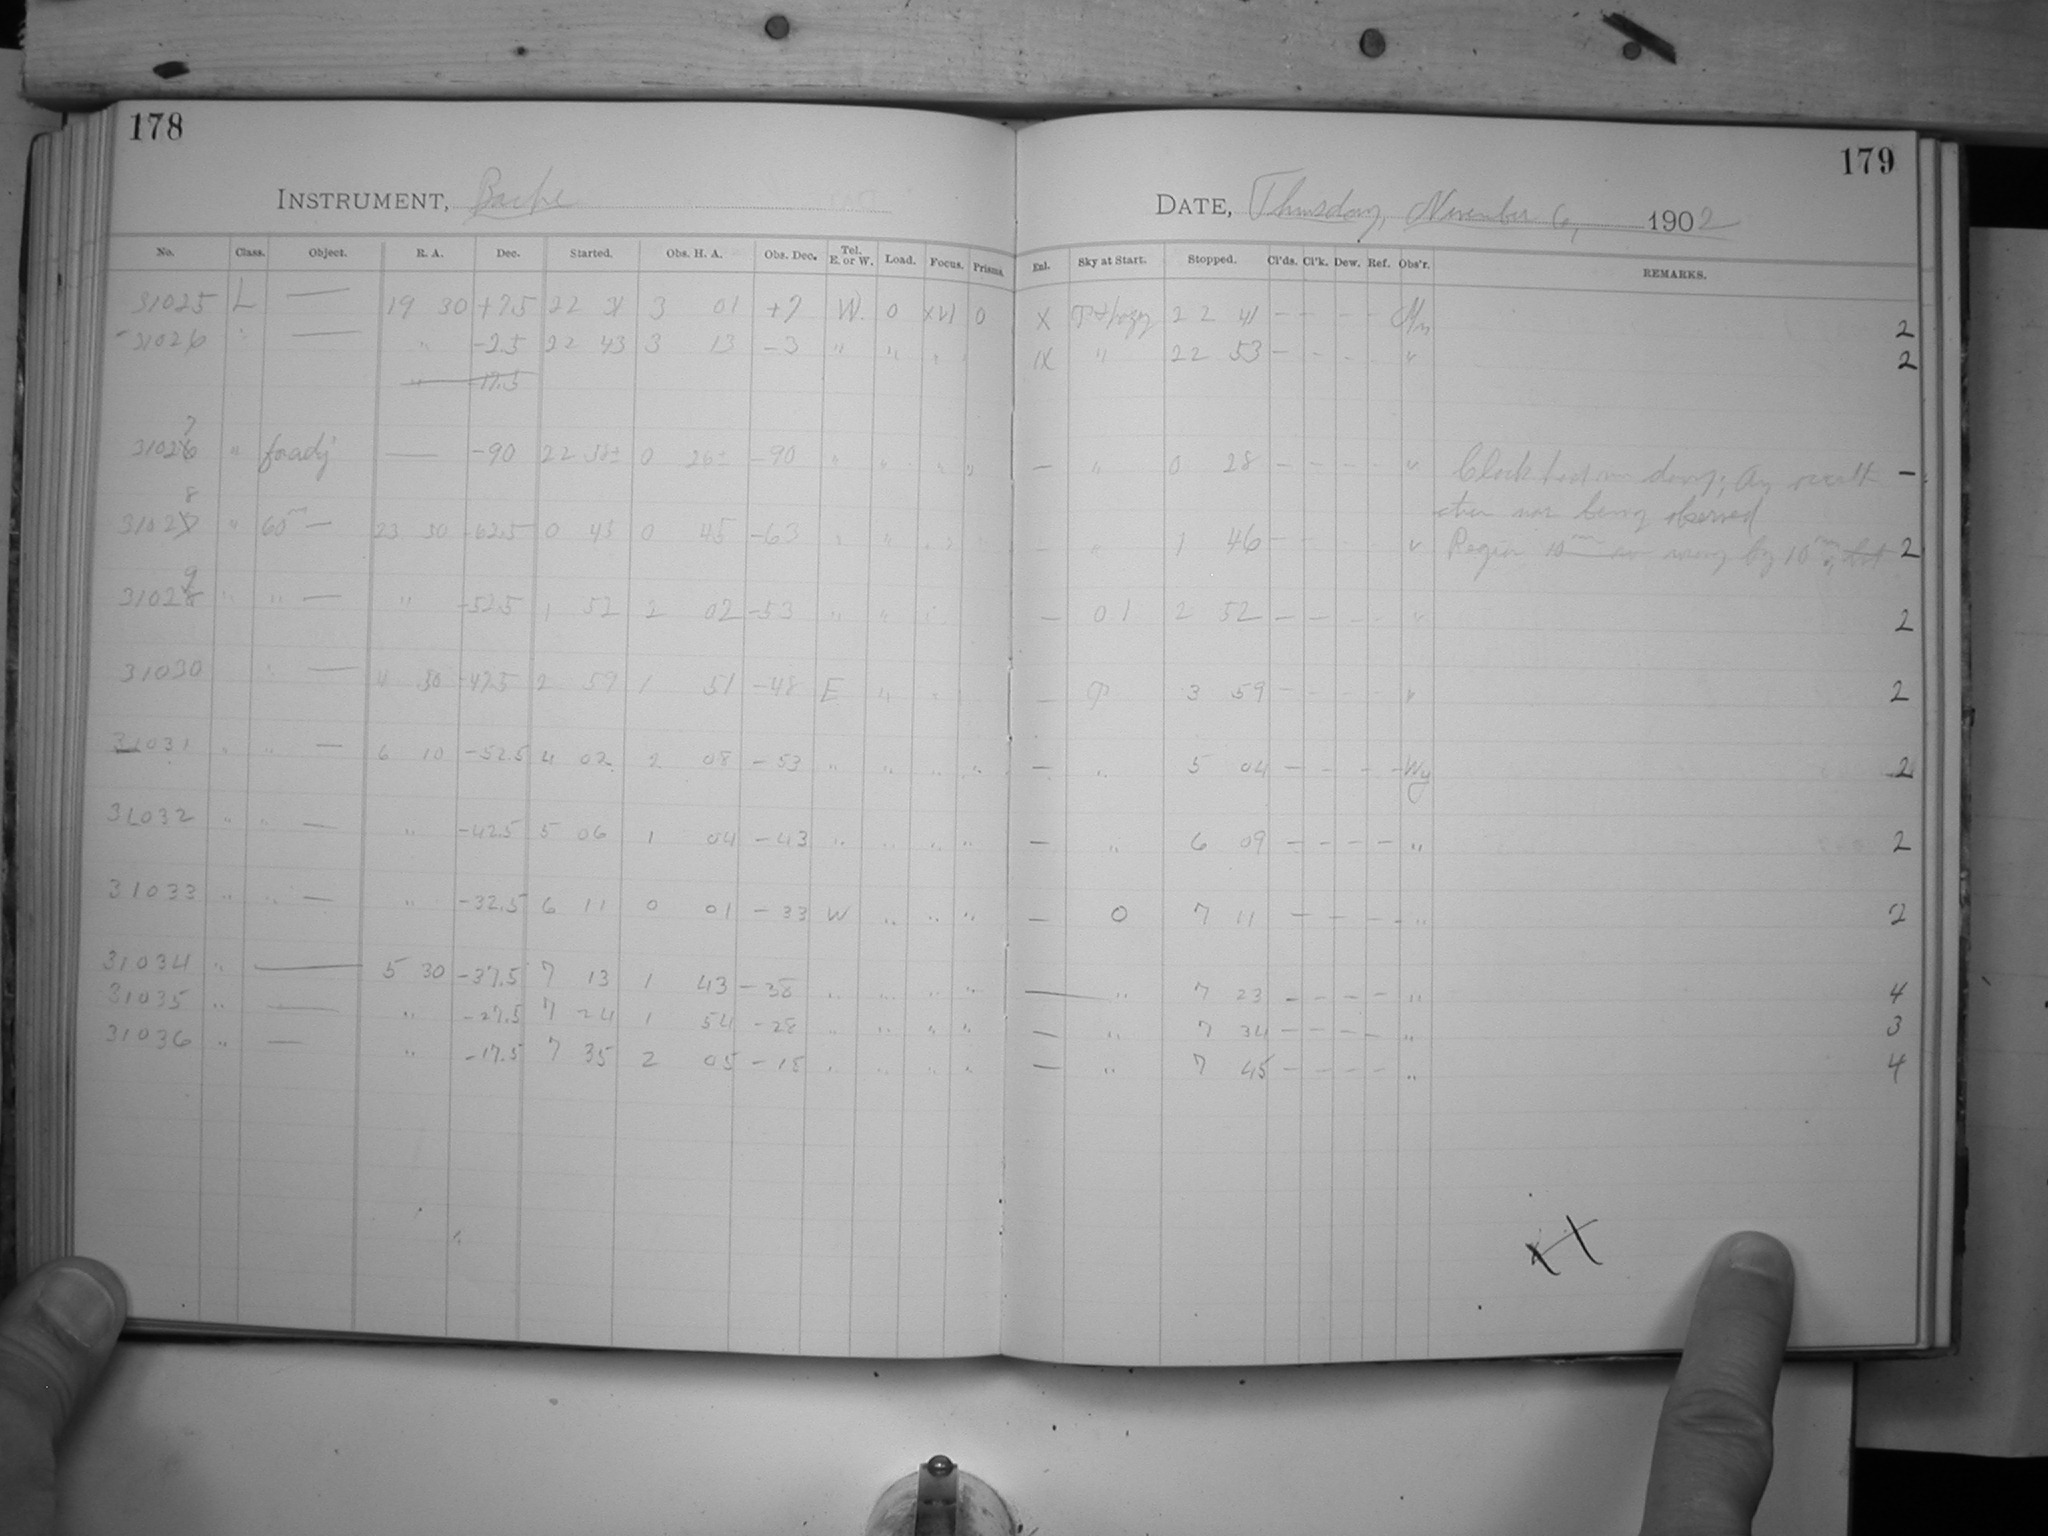 178
INSTRUMENT, Bache
No. Class. Object. R. A. Dec. Started. Obs. H. A. Obs. Dec. Tel. E. or W. Load. Focus. Prisms.
31025 L — 19 30 +7.5 22 31 3 01 +7 W. 0 0
31026 " — " -2.5 22 43 3 13 -3 " " "
" -17.5
31027 " for adj — -90 22 58± 0 26± -90 " " " "
31028 " 60m — 23 30 -62.5 0 43 0 45 -63 " " " "
31029 " " — " -52.5 1 52 2 02 -53 " " "
31030 " — 4 30 -47.5 2 59 1 51 -48 E " "
31031 " " — 6 10 -52.5 4 02 2 08 -53 " " " "
31032 " " — " -42.5 5 06 1 04 -43 " " " "
31033 " " — " -32.5 6 11 0 01 -33 W " " "
31034 " — 5 30 -37.5 7 13 1 43 -38 " " " "
31035 " — " -27.5 7 24 1 54 -28 " " " "
31036 " — " -17.5 7 35 2 05 -18 " " " "
179
DATE, Thursday, November 6, 1902
Enl. Sky at Start. Stopped. Cl'ds. Cl'k. Dew. Ref. Obs'r. REMARKS.
X 22 41 - - - - 2
IX " 22 53 - - - - " 2
— " 0 28 - - - - " Clock had run down; an occult- —
ation was being observed
— " 1 46 - - - - " Region 10m wrong by 10m, 2
— 01 2 52 - - - - " 2
— 3 59 - - - - " 2
— " 5 04 - - - - Wy 2
— " 6 09 - - - - " 2
— 0 7 11 - - - - " 2
— " 7 23 - - - - " 4
— " 7 34 - - - - " 3
— " 7 45 - - - - " 4